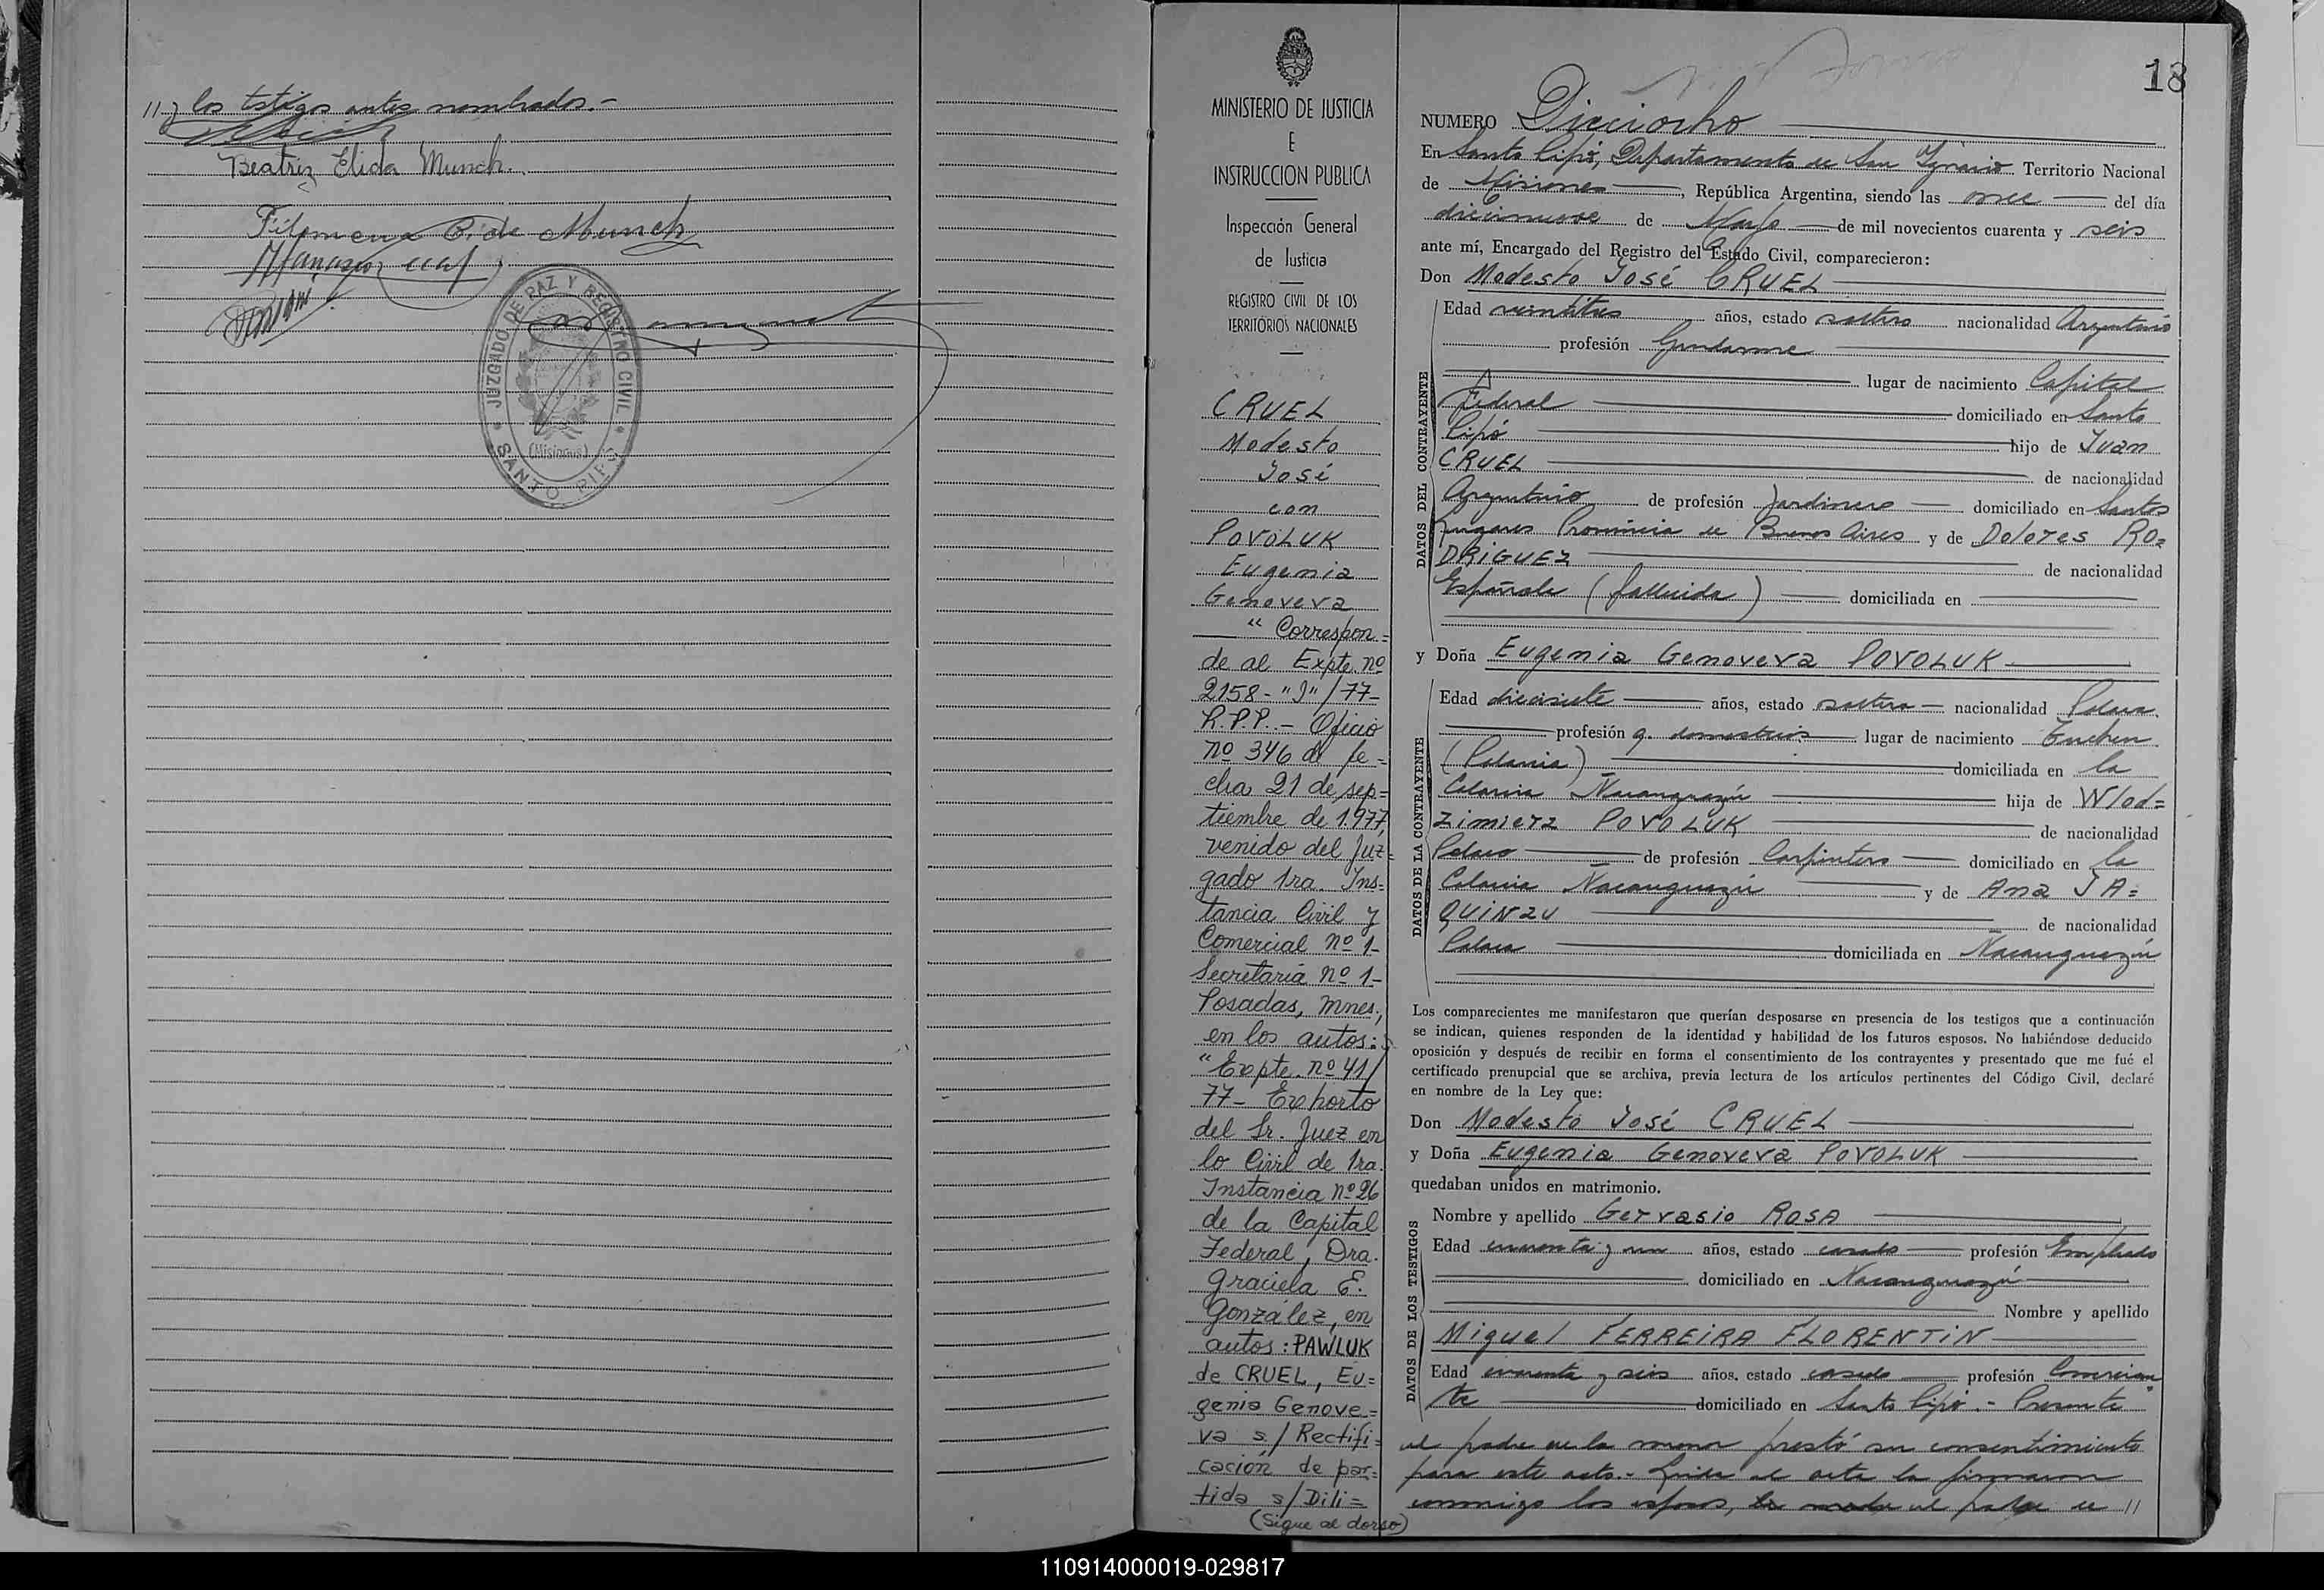 //) los testigos antes nombrados.-
Beatriz Elida Munch.
Filomena B. de Munch
JUZGADO DE PAZ Y REGISTRO CIVIL
(Misiones)
SANTO PIPO
18
MINISTERIO DE JUSTICIA
E
INSTRUCCION PUBLICA
Inspección General
de Justicia
REGISTRO CIVIL DE LOS
TERRITORIOS NACIONALES
CRUEL
Modesto
José
con
POVOLUK
Eugenia
Genoveva
“ Correspon=
de al Expte. nº
2158-"J"/77-
R.P.P.- Oficio
nº 346 de fe=
cha 21 de sep=
tiembre de 1.977,
venido del Juz=
gado 1ra. Ins=
tancia Civil y
Comercial nº 1-
Secretaría nº 1-
Posadas, Mnes.,
en los autos:
“Expte. nº 41/
77- Exhorto
del Sr. Juez en
lo Civil de 1ra.
Instancia nº 26
de la Capital
Federal, Dra.
Graciela E.
González, en
autos: PAWLUK
de CRUEL, Eu=
genia Genove=
va s/ Rectifi=
cación de par=
tida s/Dili=
(Sigue al dorso)
NUMERO Dieciocho
En Santo Pipó, Departamento de San Ignacio Territorio Nacional
de Misiones, República Argentina, siendo las once del día
diecinueve de Mayo de mil novecientos cuarenta y seis
ante mí, Encargado del Registro del Estado Civil, comparecieron:
Don Modesto José CRUEL
DATOS DEL CONTRAYENTE
Edad veintitres años, estado soltero nacionalidad Argentino
profesión Gendarme
lugar de nacimiento Capital
Federal domiciliado en Santo
Pipó hijo de Juan
CRUEL de nacionalidad
Argentino de profesión Jardinero domiciliado en Santos
Lugares Provincia de Buenos Aires y de Dolores RO=
DRIGUEZ de nacionalidad
Española (fallecida) domiciliada en
y Doña Eugenia Genoveva POVOLUK
DATOS DE LA CONTRAYENTE
Edad diecisiete años, estado soltera nacionalidad Polaca
profesión q. domesticos lugar de nacimiento
(Polonia) domiciliada en la
Colonia Ñacanguazú hija de Wlod=
zimierz POVOLUK de nacionalidad
Polaco de profesión Carpintero domiciliado en la
Colonia Ñacanguazú y de Ana JA=
QUINZU de nacionalidad
Polaca domiciliada en Ñacanguazú
Los comparecientes me manifestaron que querían desposarse en presencia de los testigos que a continuación
se indican, quienes responden de la identidad y habilidad de los futuros esposos. No habiéndose deducido
oposición y después de recibir en forma el consentimiento de los contrayentes y presentado que me fué el
certificado prenupcial que se archiva, previa lectura de los artículos pertinentes del Código Civil, declaré
en nombre de la Ley que:
Don Modesto José CRUEL
y Doña Eugenia Genoveva POVOLUK
quedaban unidos en matrimonio.
DATOS DE LOS TESTIGOS
Nombre y apellido Gervasio ROSA
Edad y un años, estado casado profesión Empleado
domiciliado en Ñacanguazú
Nombre y apellido
Miguel FERREIRA FLORENTIN
Edad y seis años, estado casado profesión Comercian
te domiciliado en Santo Pipó.- Presente
el padre de la menor prestó su consentimiento
para este acto.- Leída el acta la firmaron
conmigo los esposos, el padre de //
110914000019-029817